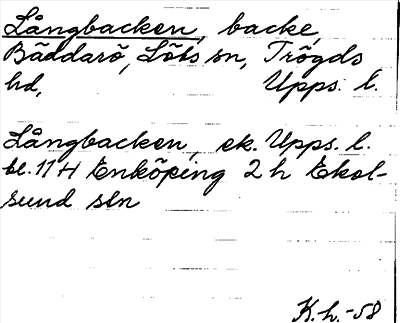 Långbacken, backe,
Bäddarö, Löts sn, Trögds
hd, Upps. l.
Långbacken, ek. Upps. l.
bl. 11 H Enköping 2 h Ekol-
sund stn
K.h.-58